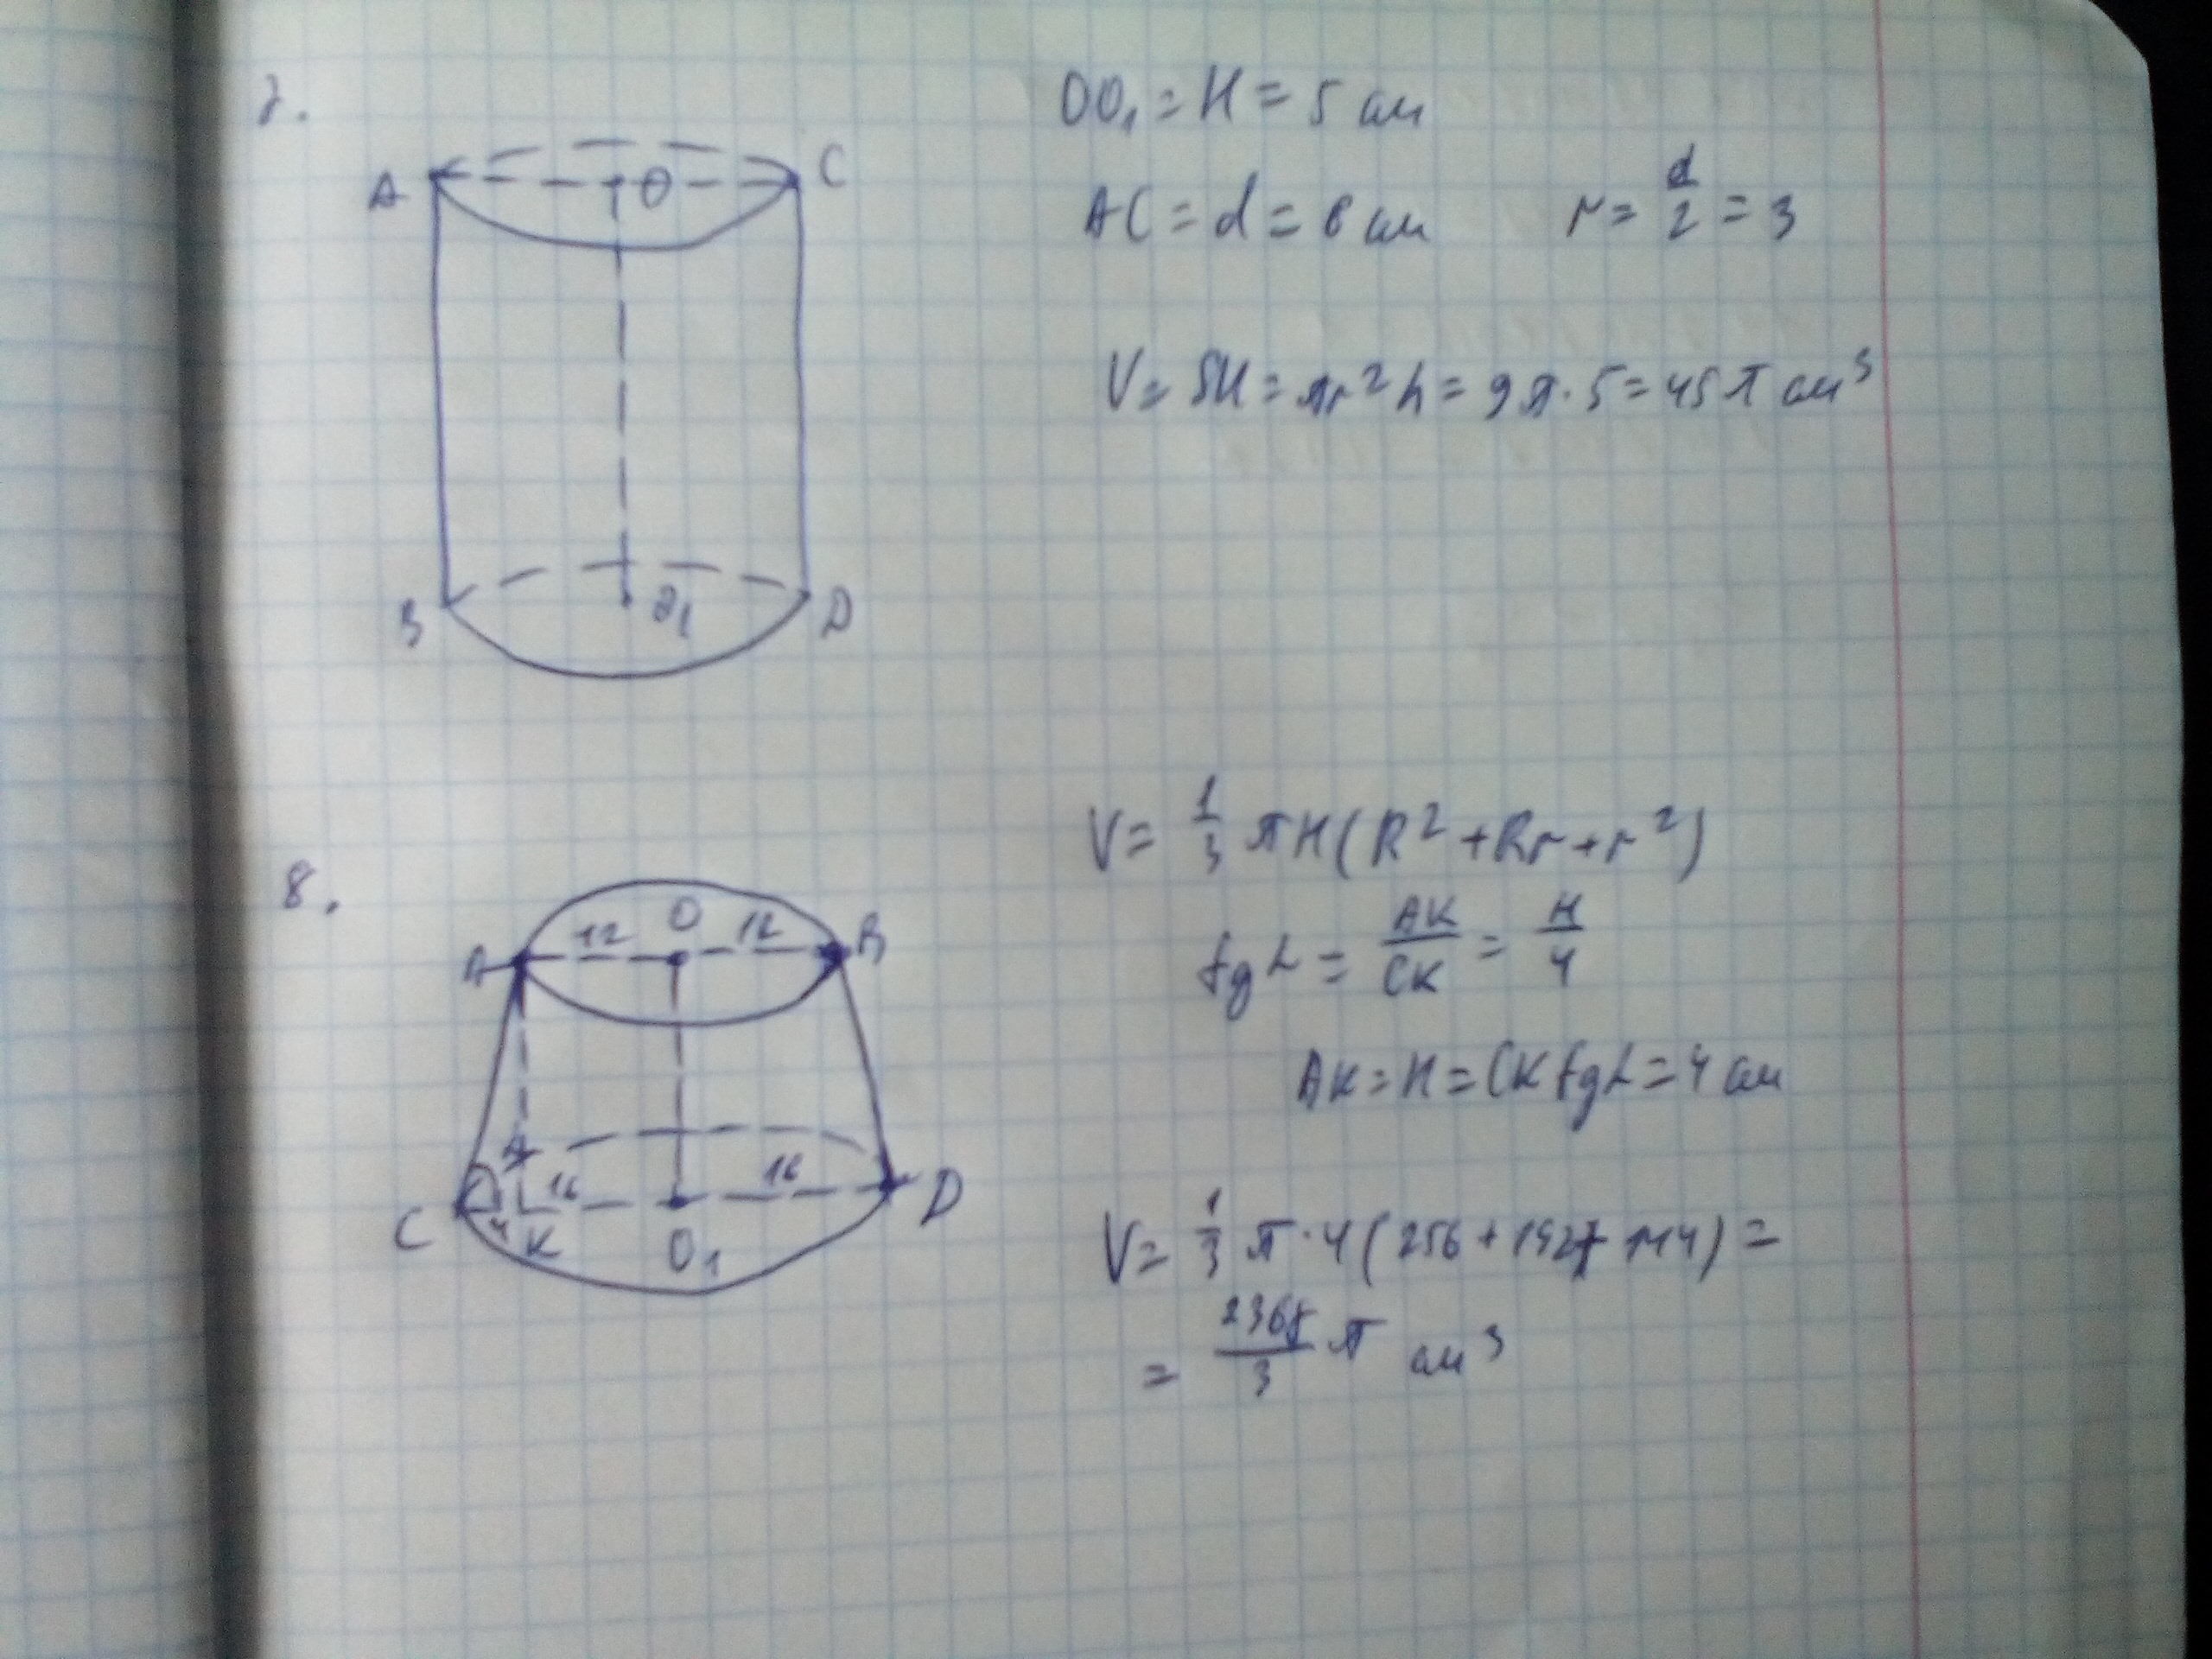 7.
A O C
B O₁ D
OO₁ = H = 5 см
AC = d = 6 см r = d/2 = 3
V = SH = πr²h = 9π·5 = 45π см³
8.
A 12 O 12 B
C 4 K 16 O₁ 16 D
V = 1/3 πH(R² + Rr + r²)
tg L = AK/CK = H/4
AK = H = CK tg L = 4 см
V = 1/3 π·4(256 + 192 + 144) =
= 2368/3 π см³